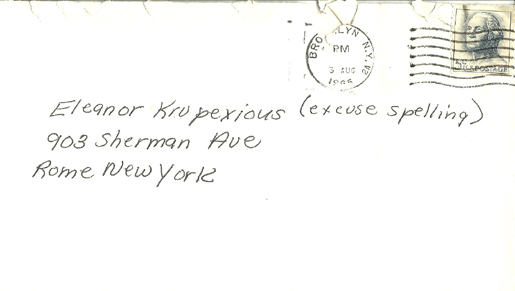 BROOKLYN N.Y.
PM
3 AUG
5¢ U.S. POSTAGE
Eleanor Krupexious (excuse spelling)
903 Sherman Ave
Rome New York